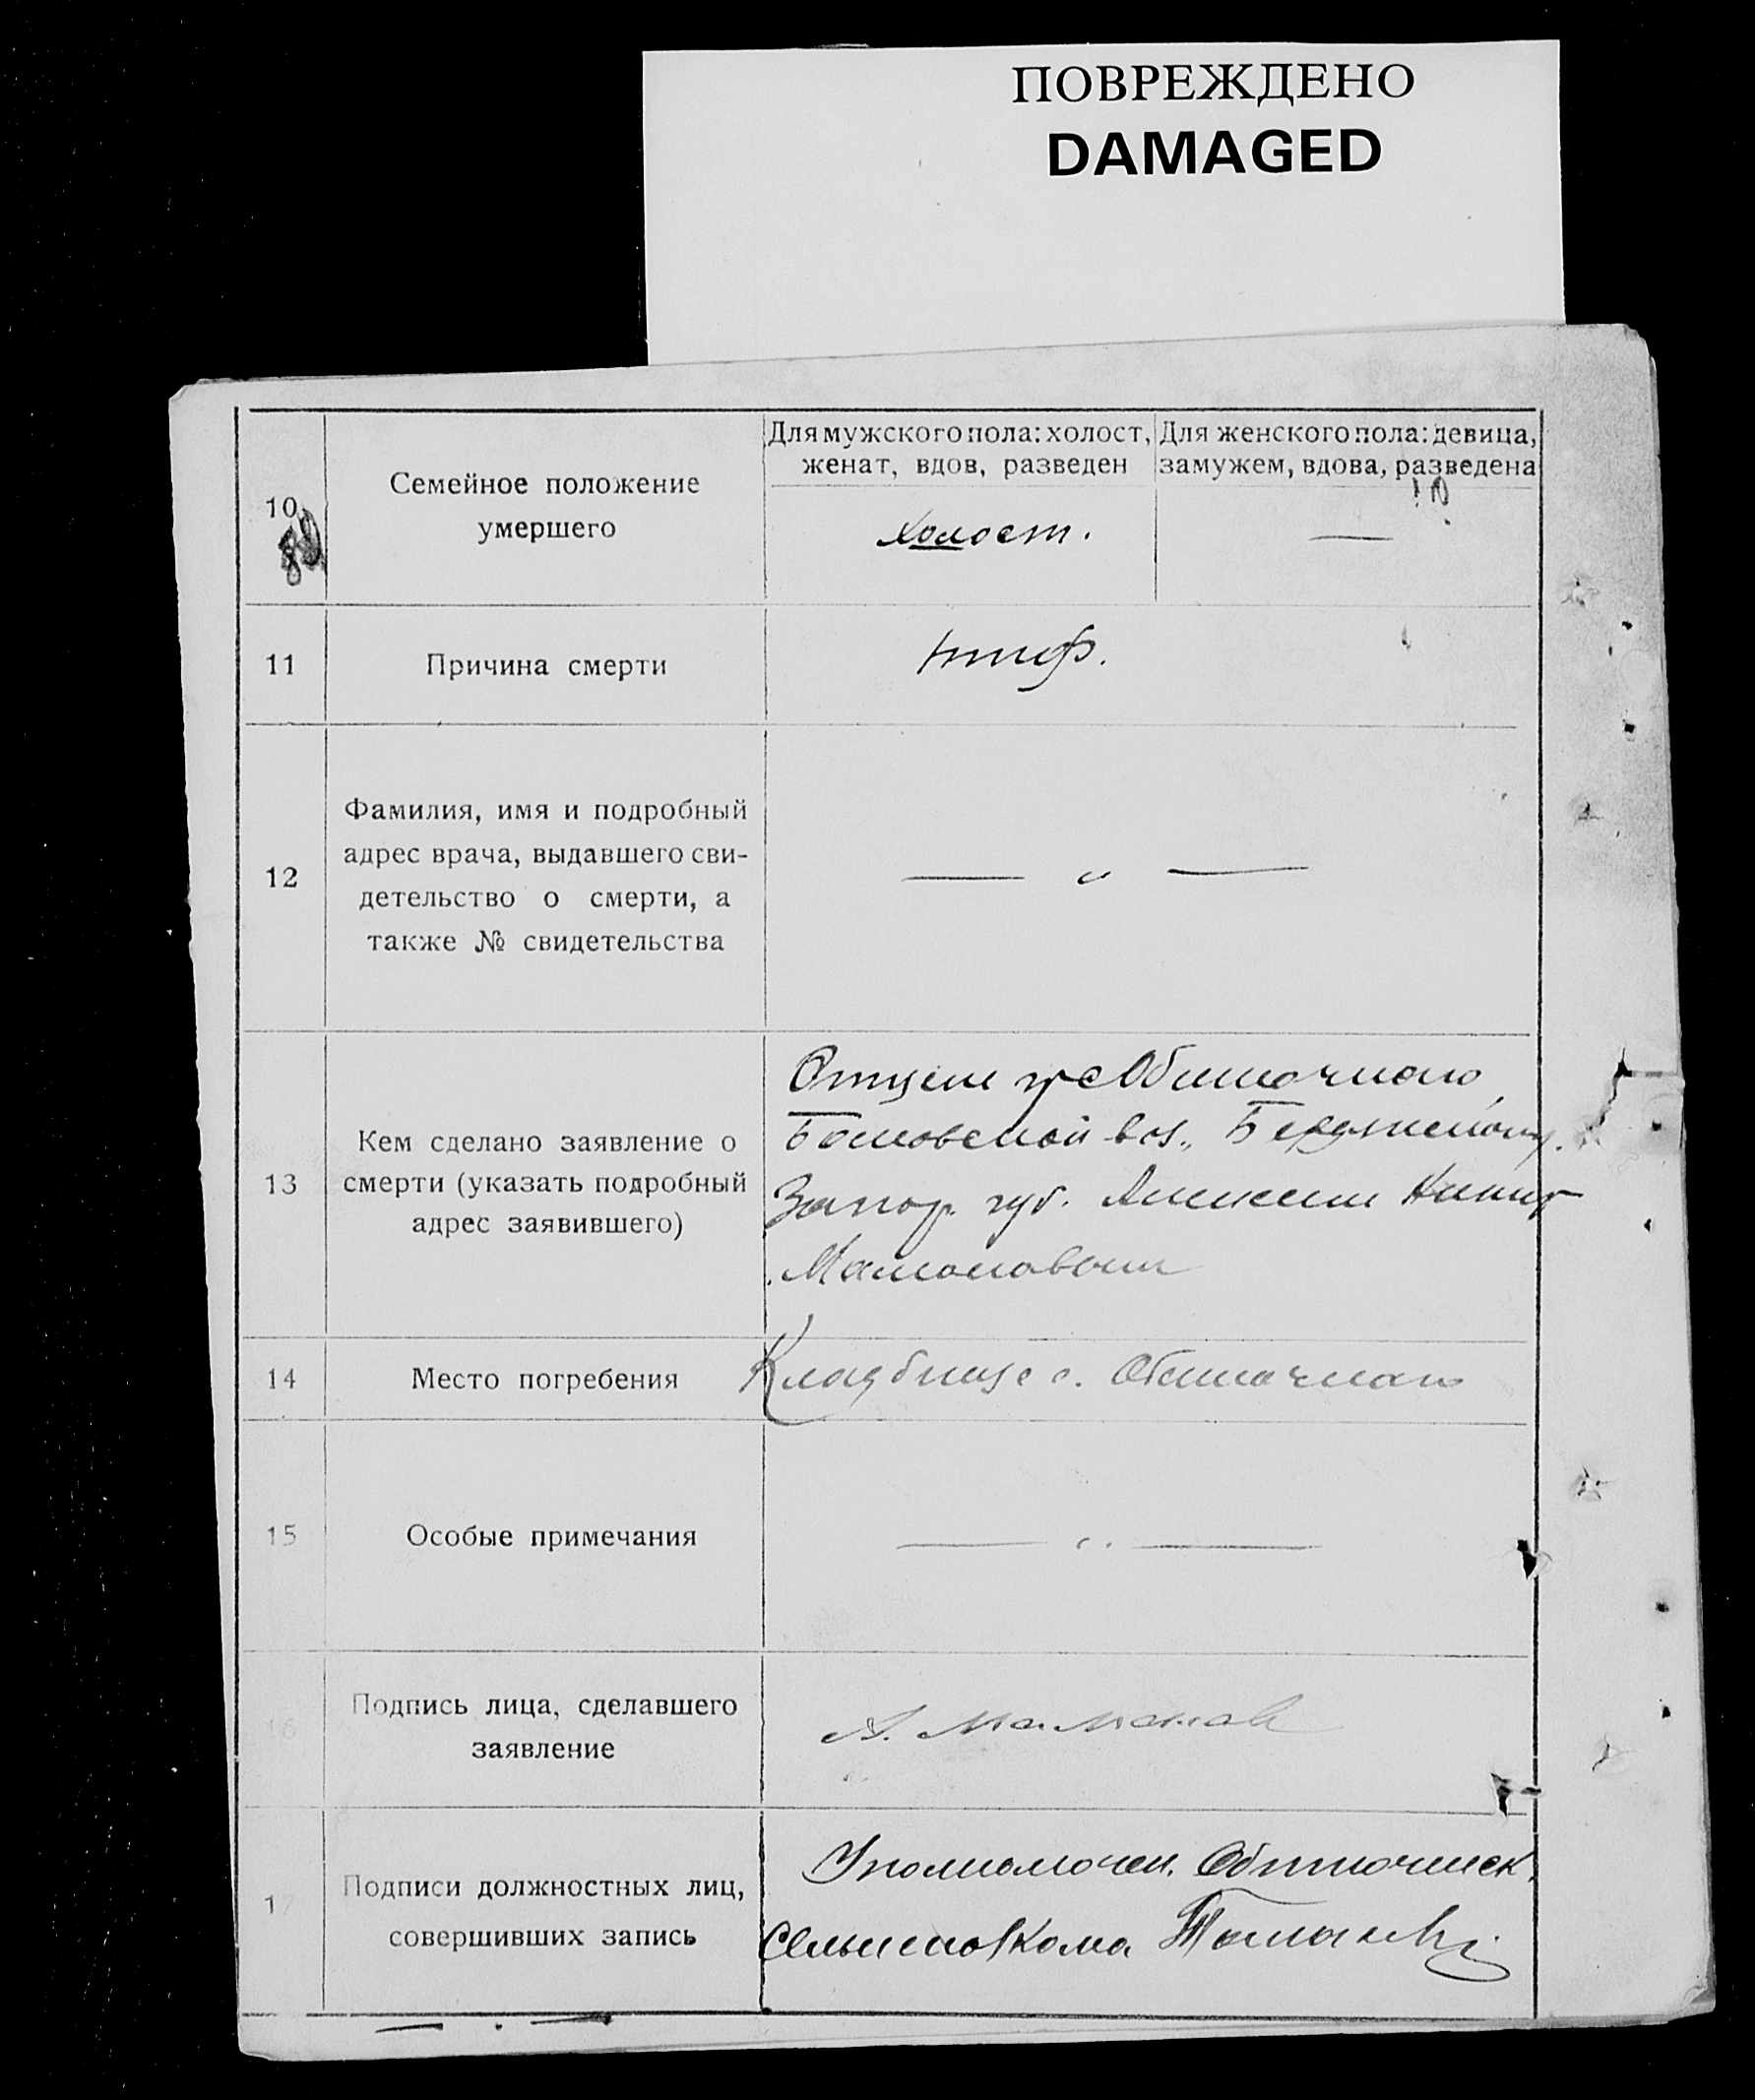 ПОВРЕЖДЕНО
DAMAGED
10
Семейное положение
умершего
Для мужского пола: холост,
женат, вдов, разведен
Для женского пола: девица,
замужем, вдова, разведена
холост.
—
11
Причина смерти
тиф.
12
Фамилия, имя и подробный
адрес врача, выдавшего сви-
детельство о смерти, а
также № свидетельства
— " —
13
Кем сделано заявление о
смерти (указать подробный
адрес заявившего)
Отцем гр с Обиточного
вол., Бердянского у.
Запор. губ. Алексеем
Мамоновым
14
Место погребения
Кладбище с. Обиточного
15
Особые примечания
— " —
16
Подпись лица, сделавшего
заявление
А. Мамонов
17
Подписи должностных лиц,
совершивших запись
Уполномочен. Обиточенск.